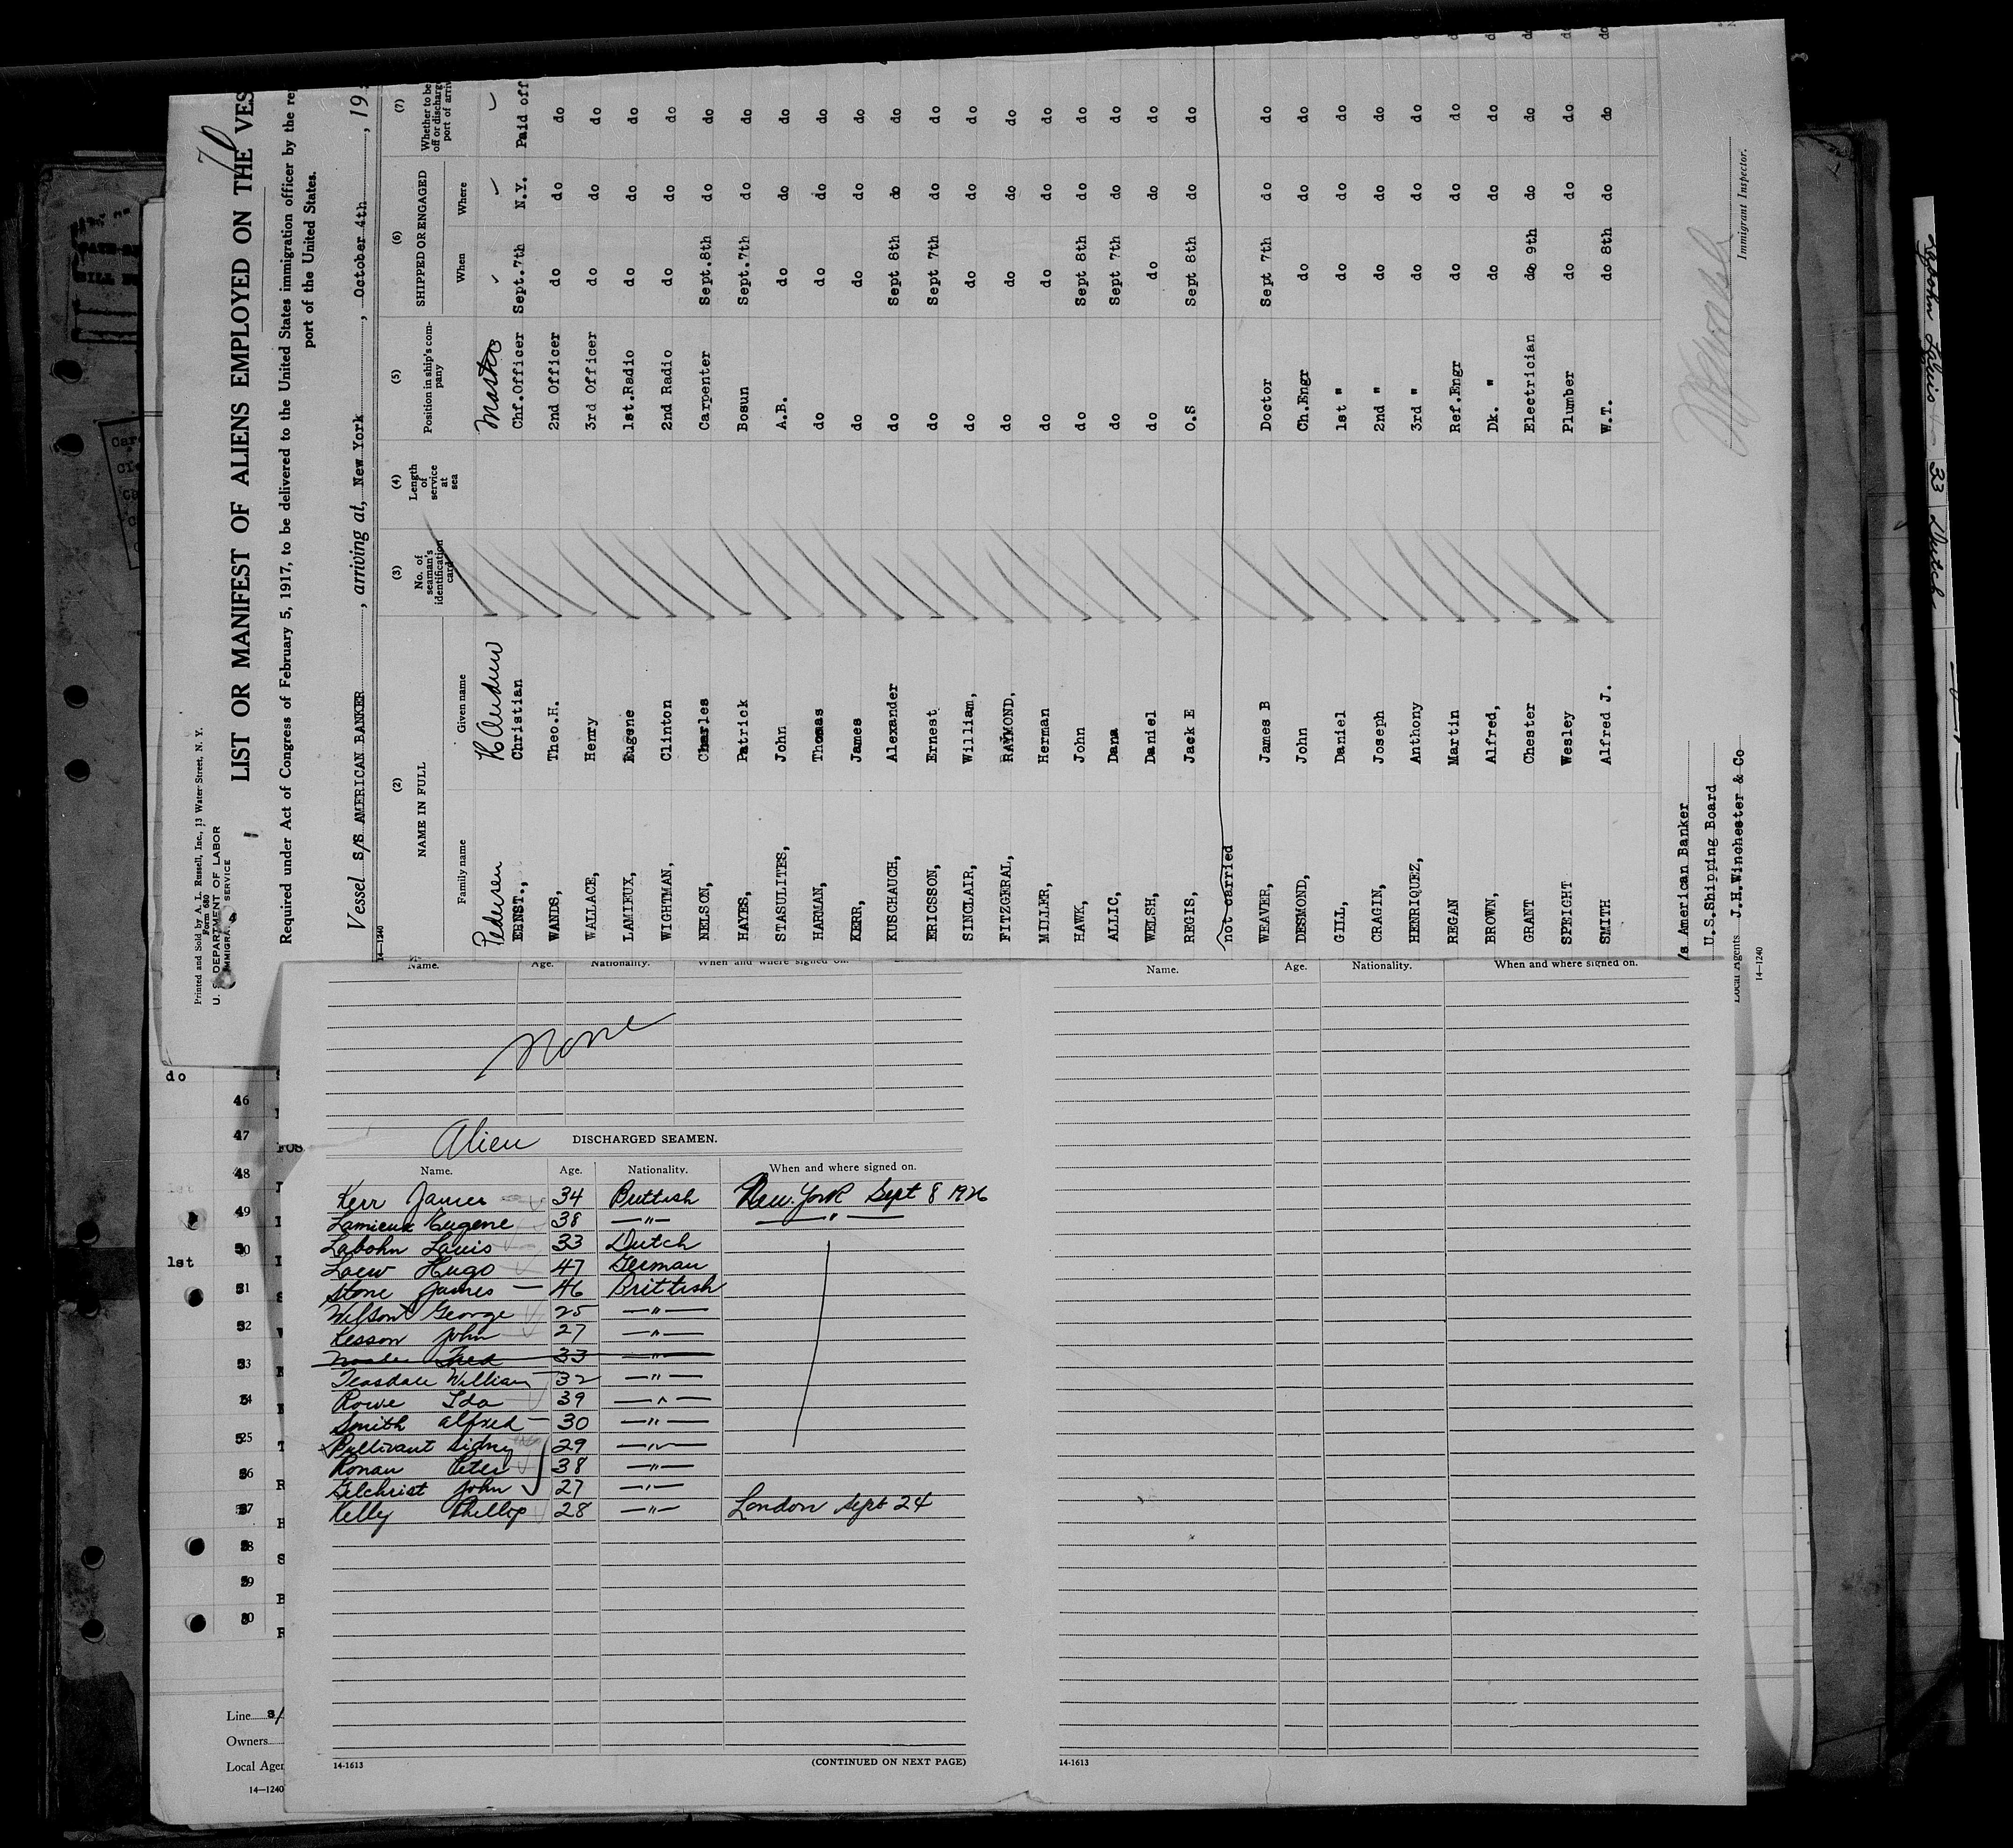 Printed and Sold by A. L. Russell, Inc., 13 Water Street, N. Y.
Form 680
U. S. DEPARTMENT OF LABOR
IMMIGRATION SERVICE
LIST OR MANIFEST OF ALIENS EMPLOYED ON THE VES
Required under Act of Congress of February 5, 1917, to be delivered to the United States immigration officer by the re
port of the United States.
Vessel S/S AMERICAN BANKER, arriving at, New York, October 4th, 19
14—1240
(2) (3) (4) (5) (6) (7)
NAME IN FULL No. of seaman's identification card Length of service at sea Position in ship's company SHIPPED OR ENGAGED Whether to be
off or discharg
port of arriv
Family name Given name When Where
Pedersen H Andrew Master
ERNST., Christian Chf.Officer Sept.7th N.Y. Paid off
WANDS, Theo.H. 2nd Officer do do do
WALLACE, Henry 3rd Officer do do do
LAMIEUX, Eugene 1st.Radio do do do
WIGHTMAN, Clinton 2nd Radio do do do
NELSON, Charles Carpenter Sept.8th do do
HAYES, Patrick Bosun Sept.7th do do
STASULITES, John A.B. do do do
HARMAN, Thomas do do do do
KERR, James do do do do
KUSCHAUCH, Alexander do Sept 8th do do
ERICSSON, Ernest. do Sept 7th do do
SINCLAIR, William, do do do do
FITZGERAL, RAYMOND, do do do do
MILLER, Herman do do do do
HAWK, John do Sept 8th do do
ALLIC, Dana do Sept 7th do do
WELSH, Daniel do do do do
REGIS, Jack E O.S Sept 8th do do
not carried
WEAVER, James B Doctor Sept 7th do do
DESMOND, John Ch.Engr do do do
GILL, Daniel 1st " do do do
CRAGIN, Joseph 2nd " do do do
HENRIQUEZ, Anthony 3rd " do do do
REGAN Martin Ref.Engr do do do
BROWN, Alfred, Dk. " do do do
GRANT Chester Electrician do 9th do do
SPEIGHT Wesley Plumber do do do
SMITH Alfred J. W.T. do 8th do do
/s American Banker
U.S.Shipping Board
Local Agents J.H.Winchester & Co
Immigrant Inspector.
14—1240
Name. Age. Nationality. When and where signed on.
none
Alien DISCHARGED SEAMEN.
Name. Age. Nationality. When and where signed on.
Kerr James 34 Brittish New York Sept 8 1926
Lamieux Eugene 38 —"— —"—
Labohn Louis 33 Dutch
Loew Hugo 47 German
Stone James — 46 Brittish
Wilson George 25 —"—
Kesson John 27 —"—
Fred 33 —"—
Teasdale William 32 —"—
Rowe Ida 39 —"—
Smith Alfred — 30 —"—
Bullivant Sidney 29 —"—
Ronan Peter 38 —"—
Gilchrist John 27 —"—
Kelly Phillip 28 —"— London Sept 24
14-1613
(CONTINUED ON NEXT PAGE)
Name. Age. Nationality. When and where signed on.
14-1613
do
46
47
48
49
1st
Line s/
Owners
Local Agen
14—1240
Labohn Louis 33 Dutch